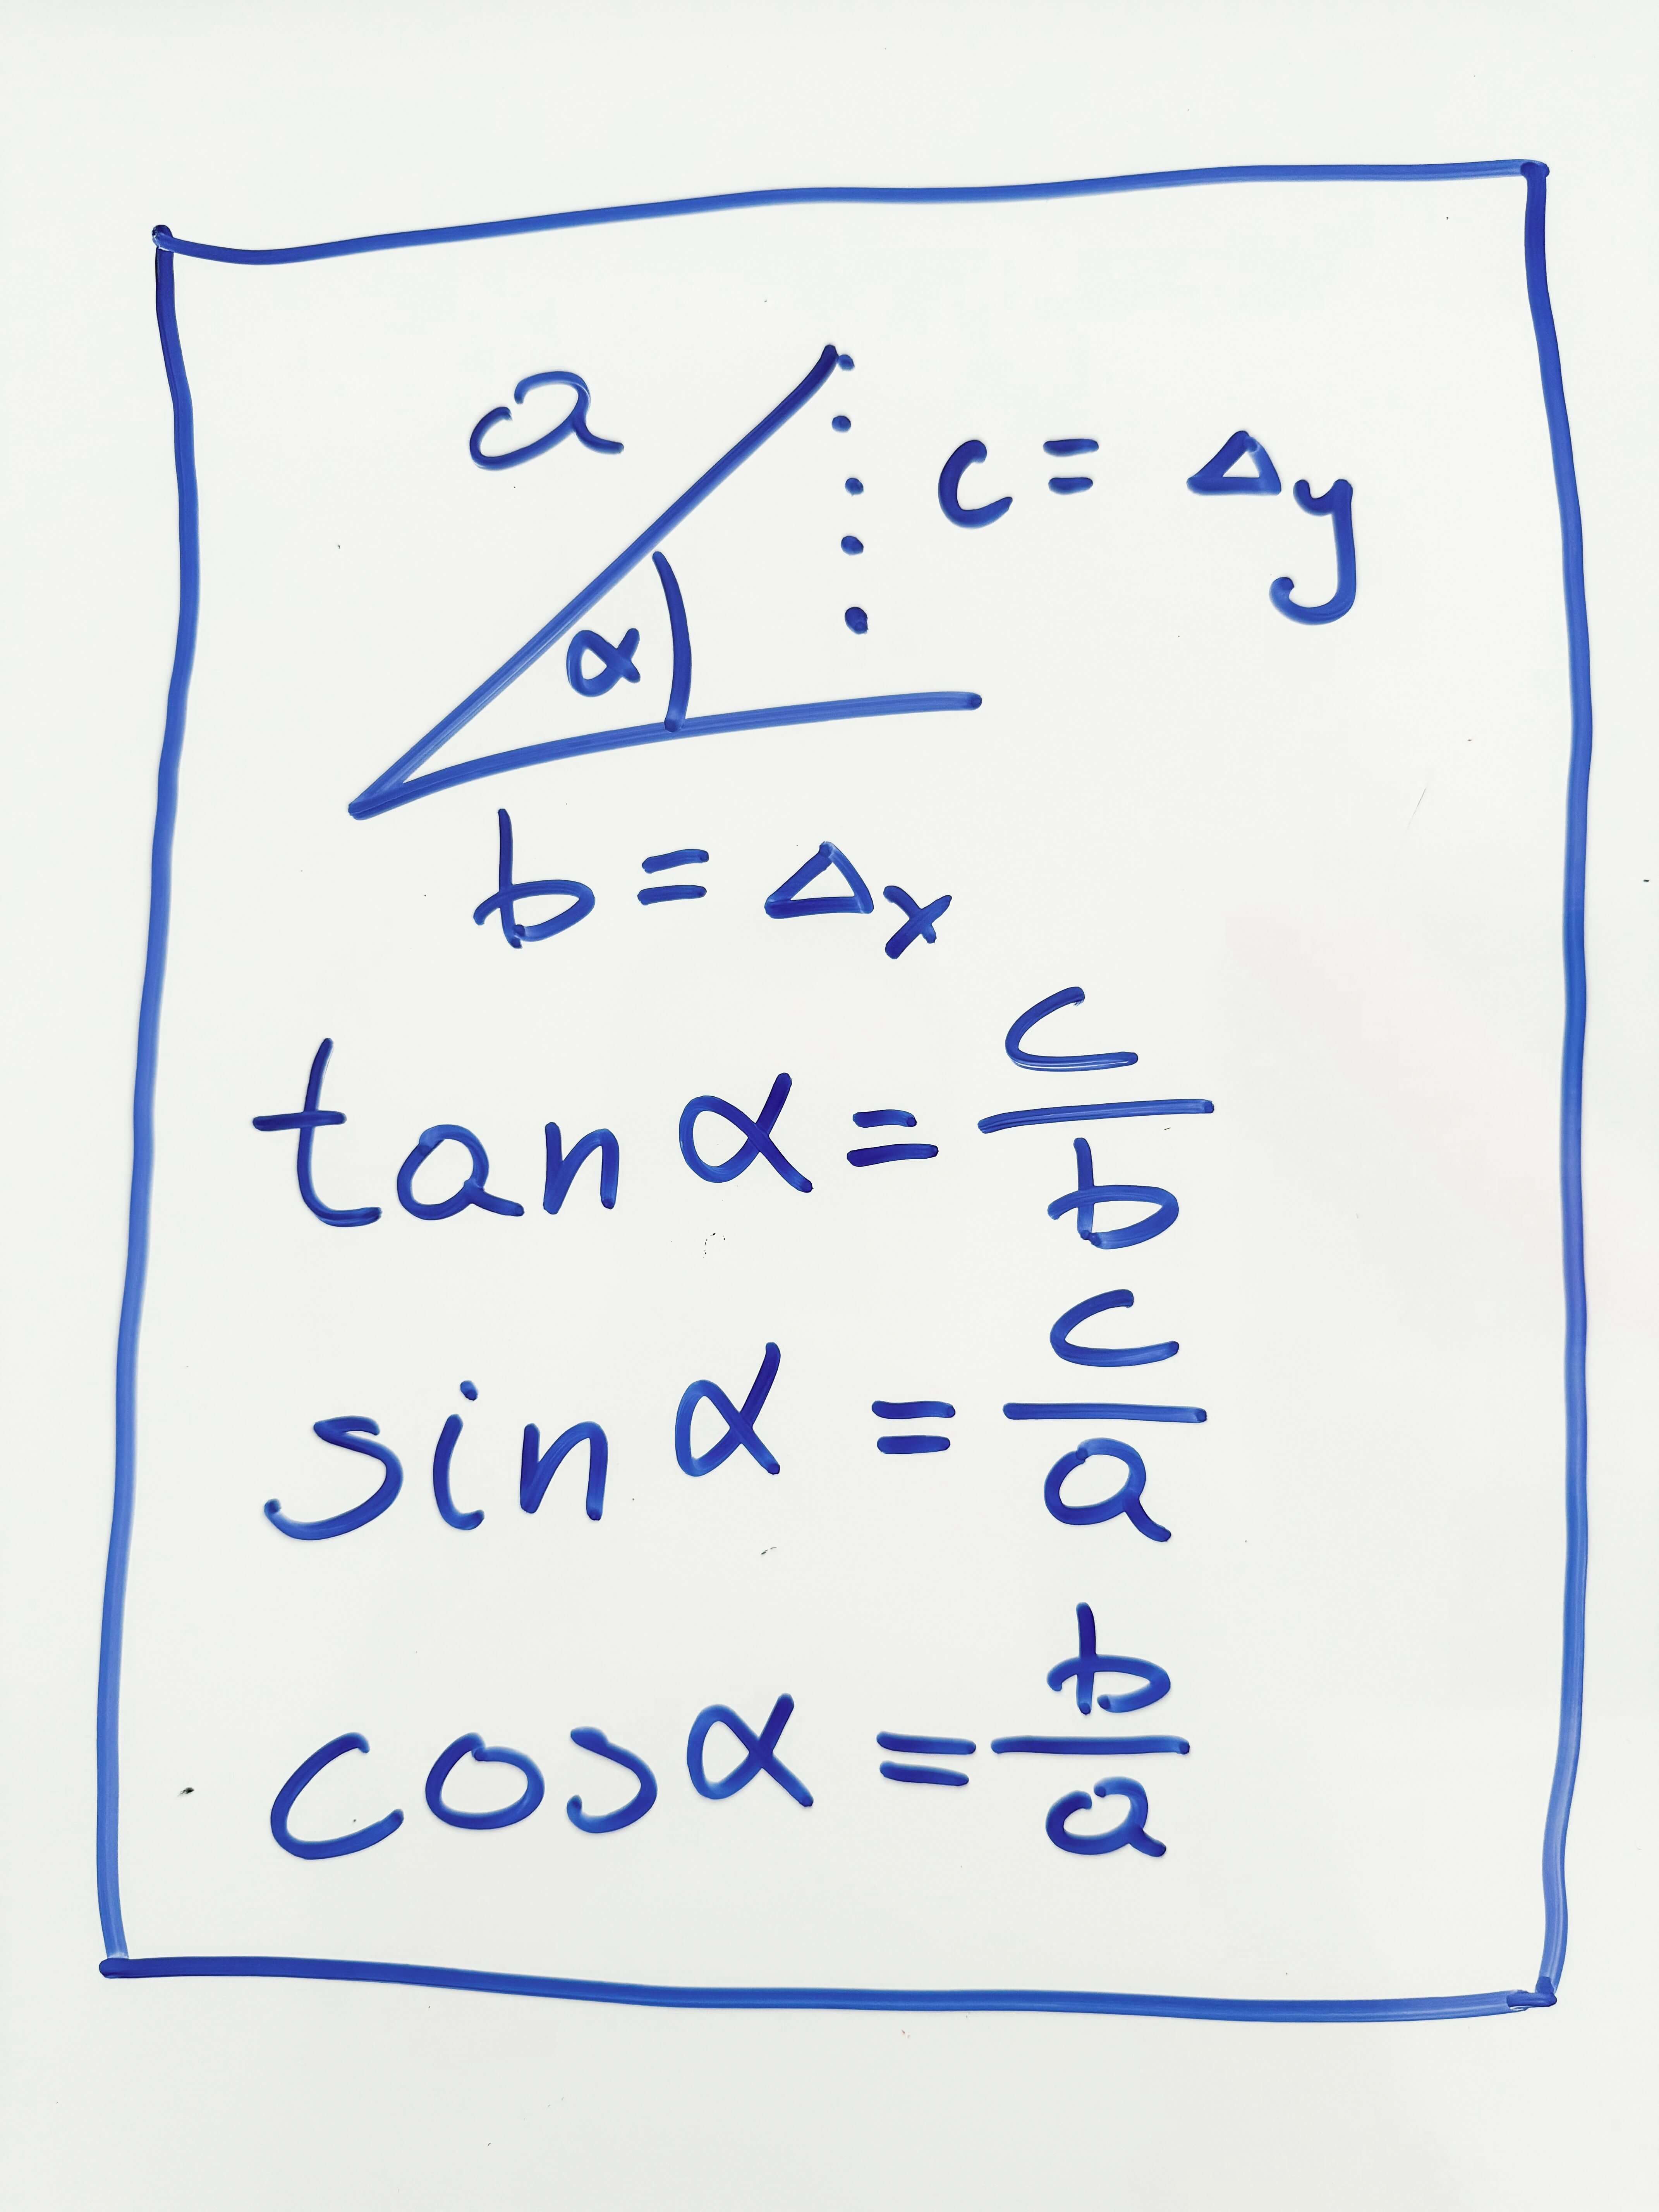 a
c = Δy
α
b = Δx
tan α = c/b
sin α = c/a
cos α = b/a